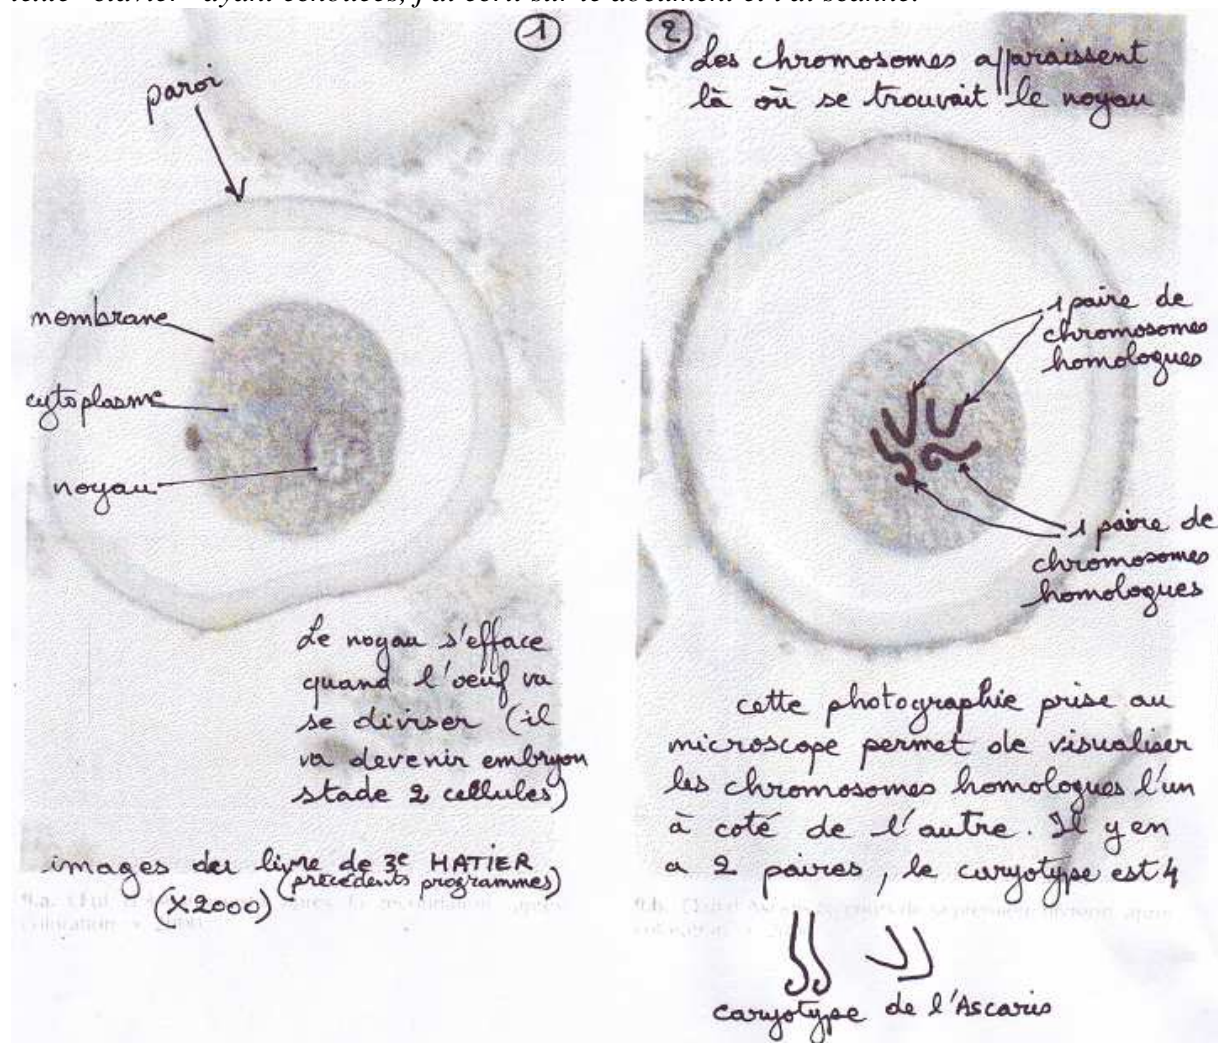 tente "clavier" ayant échouées, j'ai écrit sur le document et l'ai scanné.
1
paroi
membrane
cytoplasme
noyau
Le noyau s'efface
quand l'oeuf va
se diviser (il
va devenir embryon
stade 2 cellules)
images du livre de 3e HATIER
(précédents programmes)
(X2000)
2
Les chromosomes apparaissent
là où se trouvait le noyau
1 paire de
chromosomes
homologues
1 paire de
chromosomes
homologues
cette photographie prise au
microscope permet de visualiser
les chromosomes homologues l'un
à coté de l'autre. Il y en
a 2 paires, le caryotype est 4
caryotype de l'Ascaris